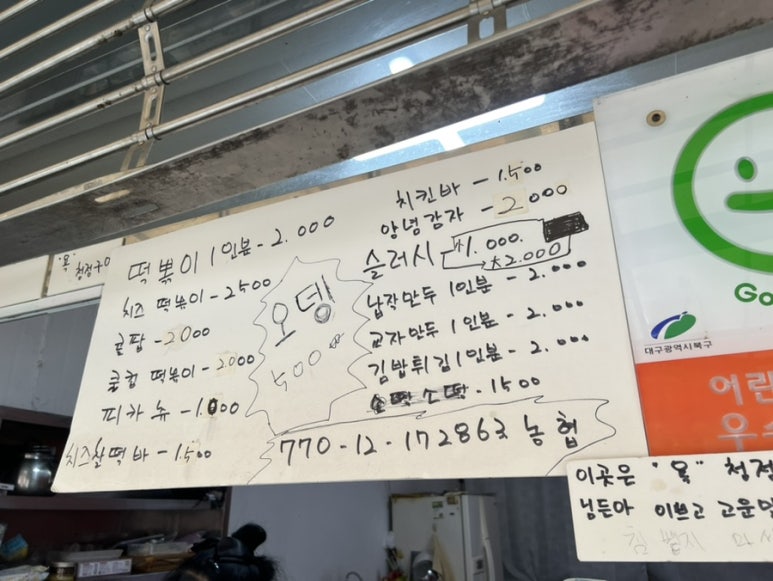 "욕" 청정구
떡볶이 1인분 - 2.000
치즈 떡볶이 - 2500
콜팝 - 2000
컵 떡볶이 - 2000
피카츄 - 1.000
치즈찰떡바 - 1.500
오뎅
500
치킨바 - 1.500
양념감자 - 2000
슬러시
小1.000.
大2.000
납작만두 1인분 - 2.000
교자만두 1인분 - 2.000
김밥튀김 1인분 - 2.000
소떡소떡 - 1500
770-12-172863 농협
Go
대구광역시북구
어린
우수
이곳은 "욕" 청정
님든아 이쁘고 고운